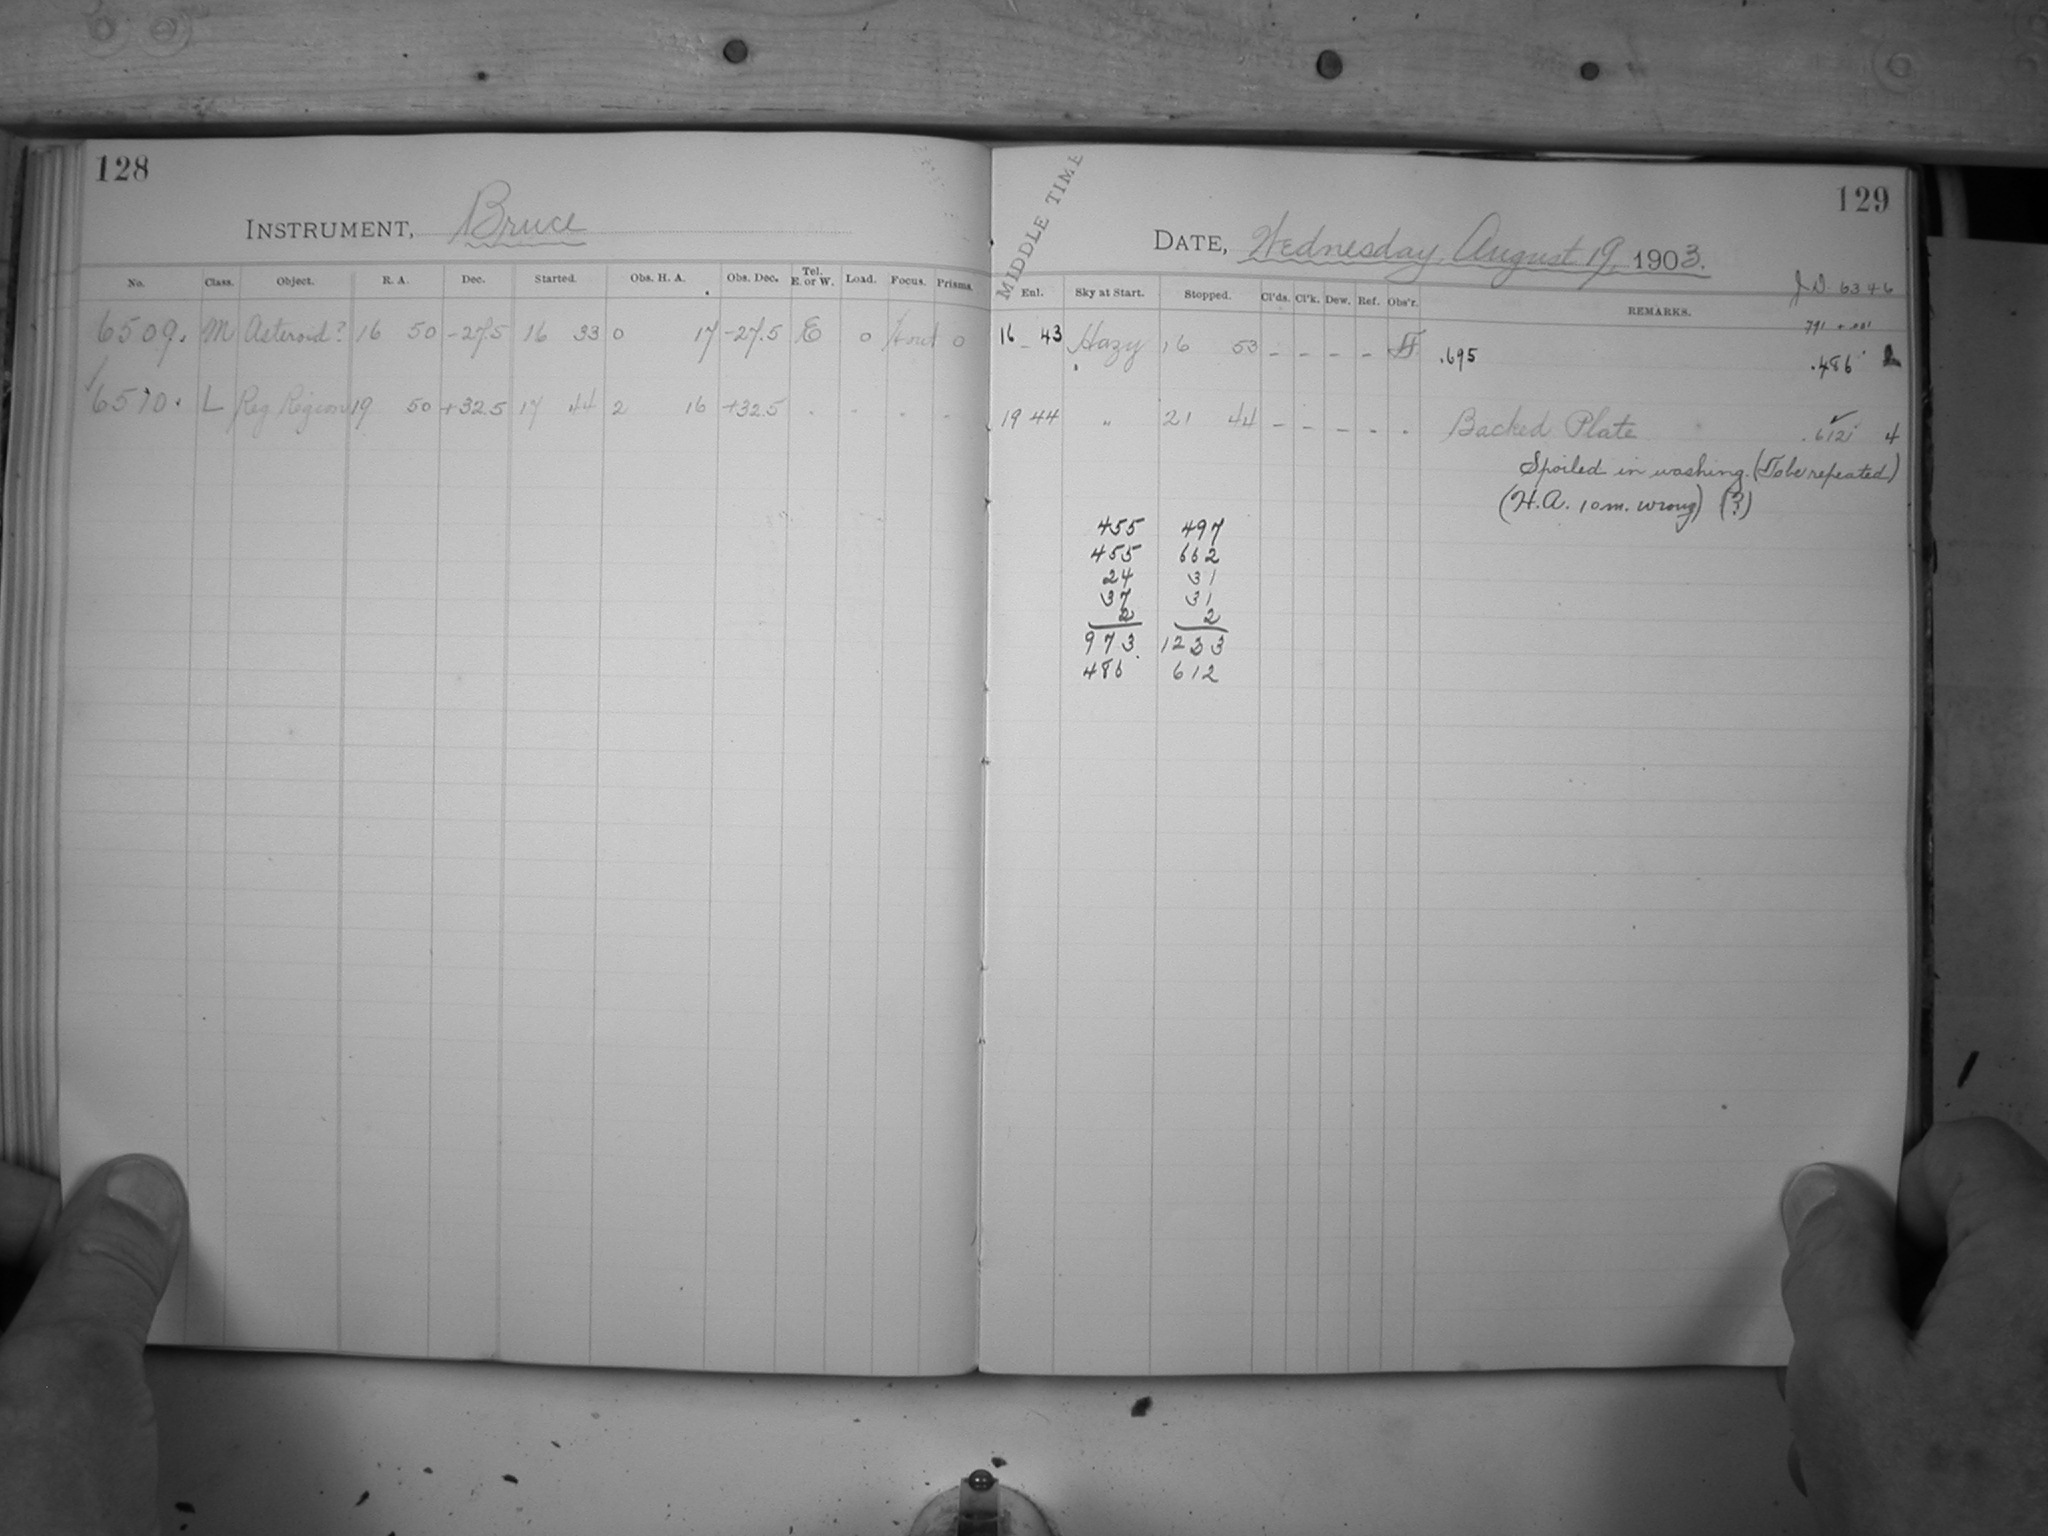 128
INSTRUMENT, Bruce
No. Class. Object. R. A. Dec. Started. Obs. H. A. Obs. Dec. Tel. E. or W. Load. Focus. Prisms.
6509. M Asteroid? 16 50 -27.5 16 33 0 17 -27.5 E 0 0
6510. L Reg Region 19 50 +32.5 17 44 2 16 +32.5
MIDDLE TIME
129
DATE, Wednesday, August 19, 1903.
J.D. 6346
Enl. Sky at Start. Stopped. Cl'ds. Cl'k. Dew. Ref. Obs'r. REMARKS.
16 43 Hazy 16 53 - - - - .695 .486
19 44 " 21 44 - - - - . Backed Plate .612 4
Spoiled in washing. (To be repeated)
(H.A. 10m. wrong) (?)
455 497
455 662
24 31
37 31
2 2
973. 1233
486 612